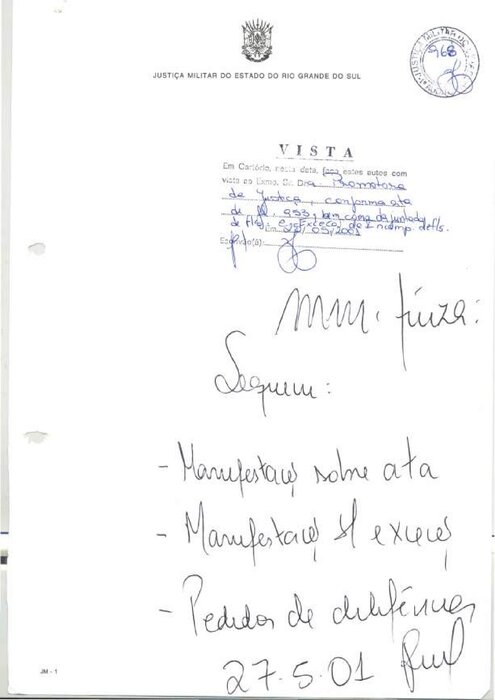 JUSTIÇA MILITAR DO ESTADO DO RIO GRANDE DO SUL
968
VISTA
Em Cartório, nesta data, faço estes autos com
vista ao Exmo. Sr. Dra. Promotora
de Justiça, conforme ata
de fl. 953, bem como da juntada
de fls. e Exceção de Incomp. de fls.
Em /05/2001
Escrivão(ã):
MM. Juíza:
Seguem:
- Manifestação sobre ata
- Manifestação s/ exceção
- Pedidos de diligências
27.5.01
JM - 1